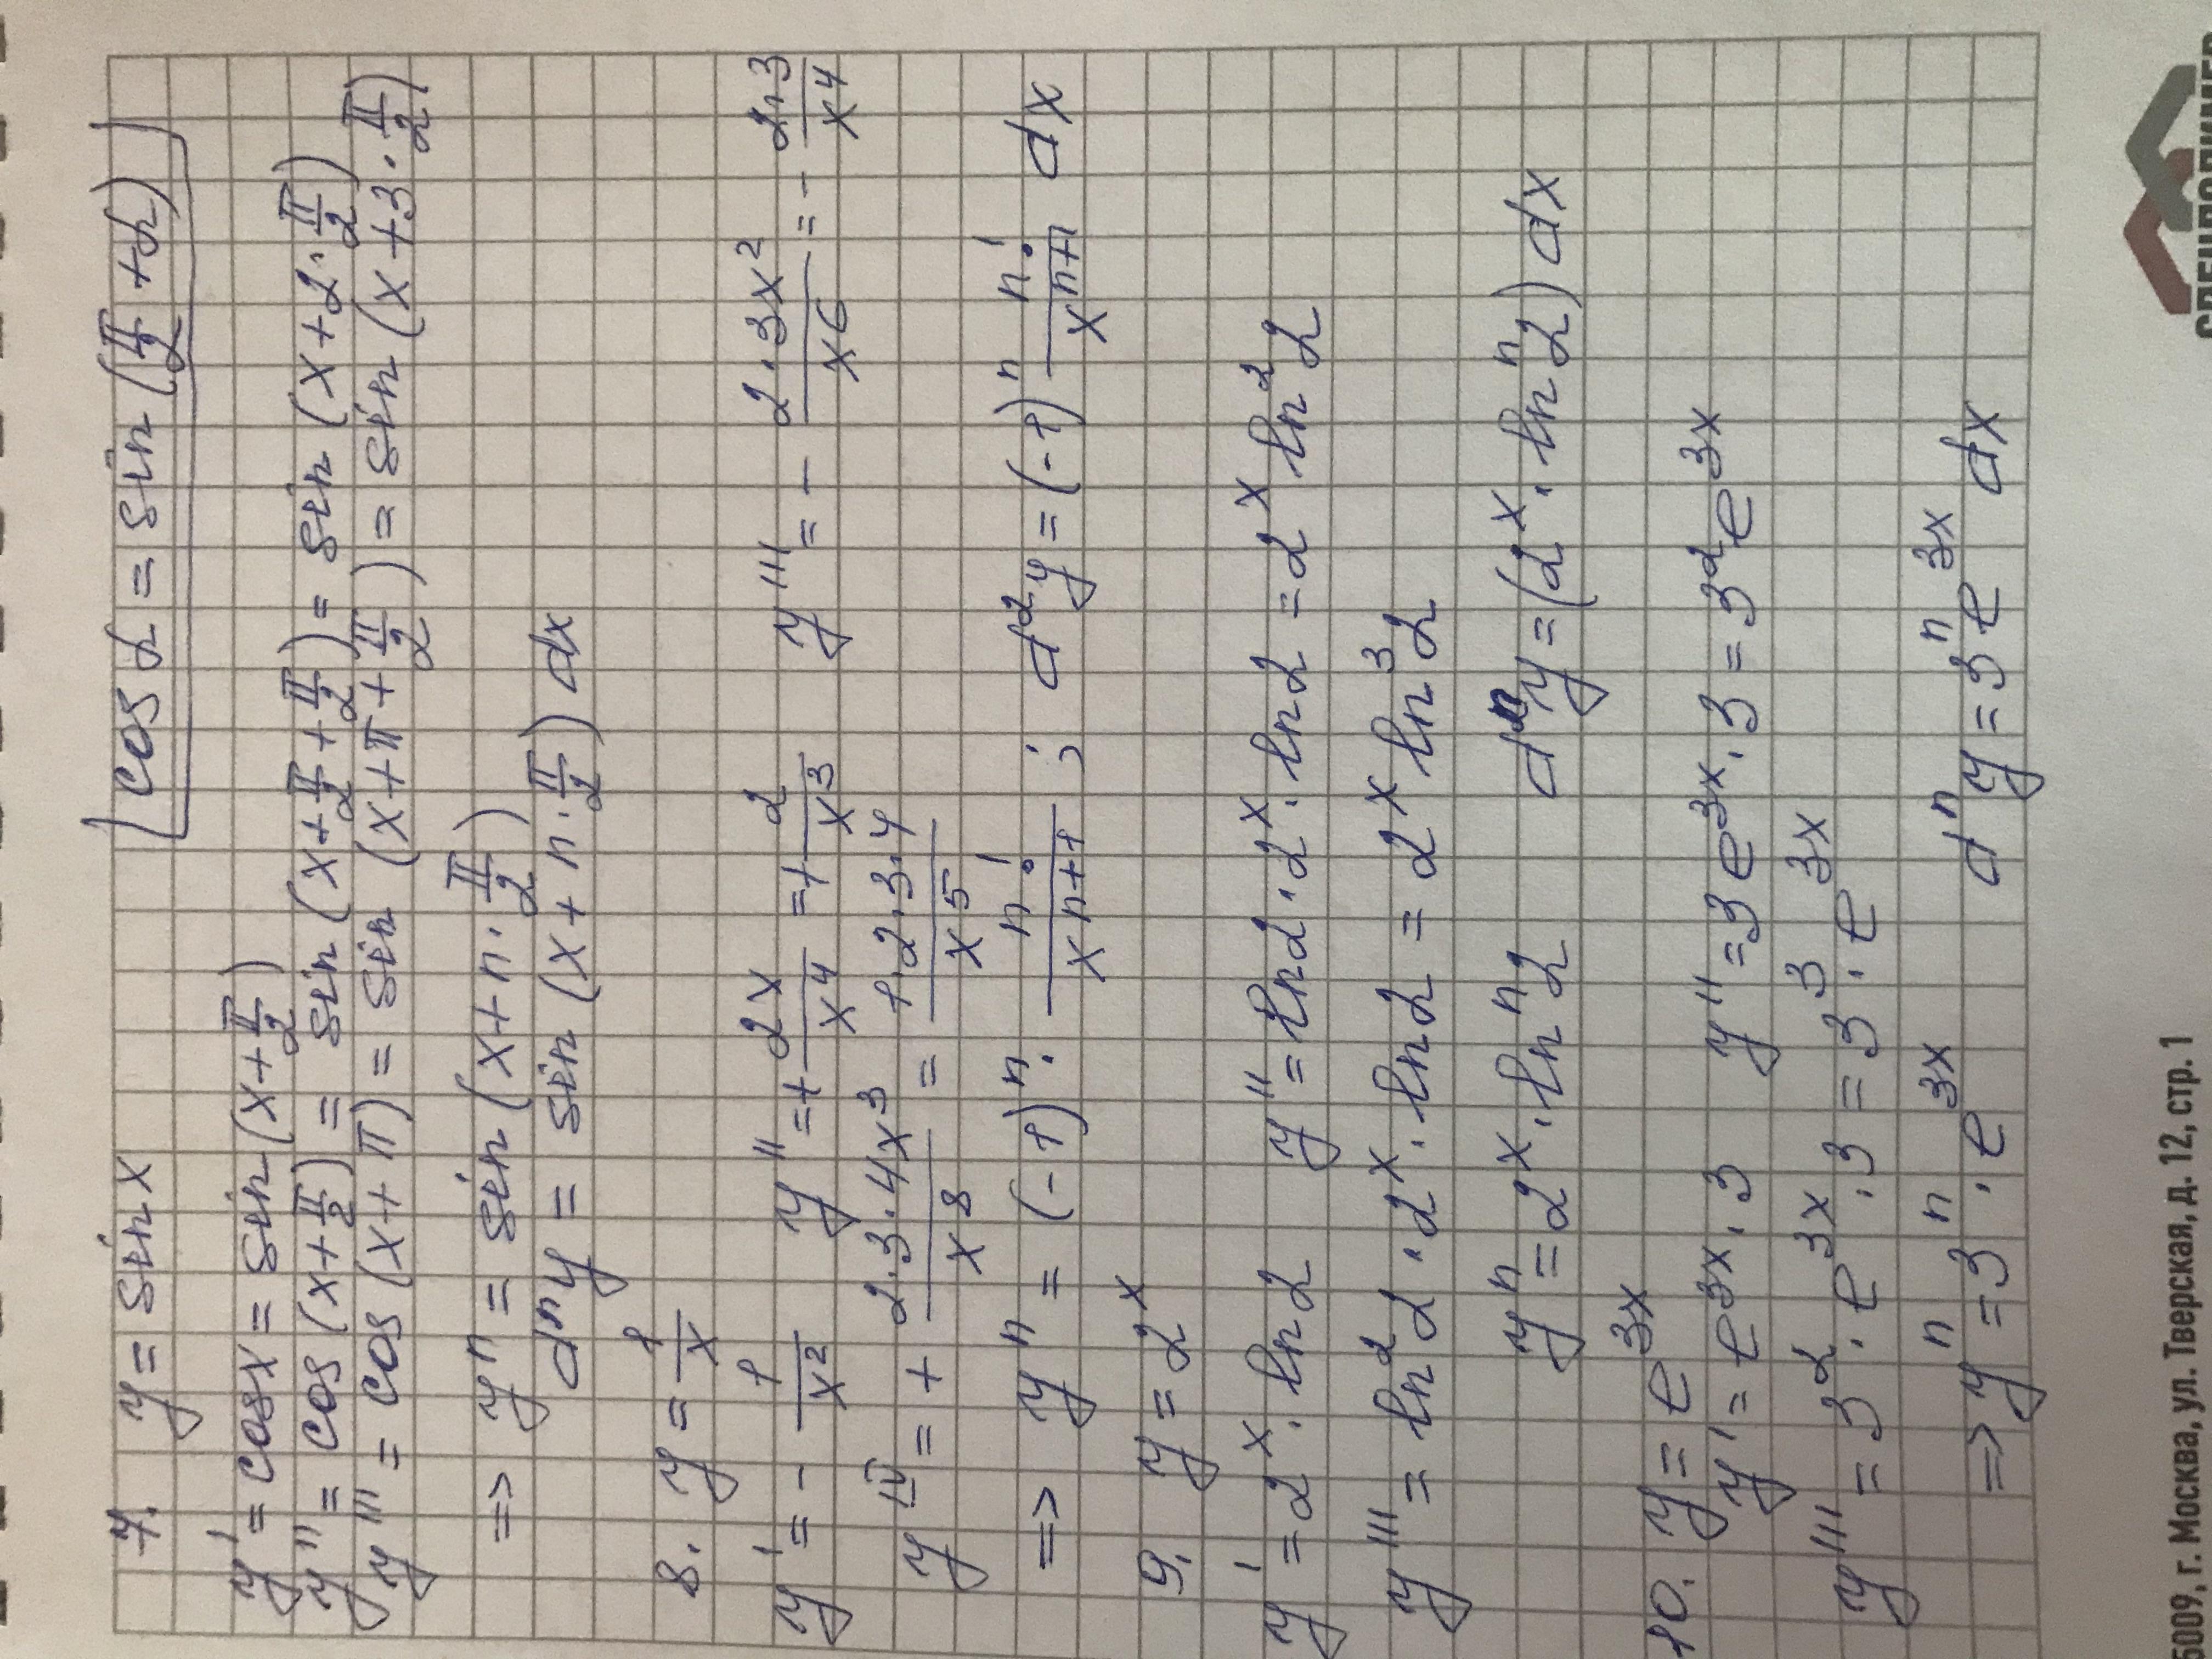 7. y = sin x [cos α = sin (π/2 + α)]
y' = cos x = sin (x + π/2)
y'' = cos (x + π/2) = sin (x + π/2 + π/2) = sin (x + 2 · π/2)
y''' = cos (x + π) = sin (x + π + π/2) = sin (x + 3 · π/2)
=> yⁿ = sin (x + n · π/2)
dⁿy = sin (x + n · π/2) dx
8. y = 1/x
y' = - 1/x² y'' = + 2x/x⁴ = + 2/x³ y''' = - 2·3x²/x⁶ = - 2·3/x⁴
y^IV = + 2·3·4x³/x⁸ = 1·2·3·4/x⁵
=> yⁿ = (-1)ⁿ · n!/xⁿ⁺¹ ; d²y = (-1)ⁿ n!/xⁿ⁺¹ dx
9. y = 2ˣ
y' = 2ˣ · ln 2 y'' = ln 2 · 2ˣ · ln 2 = 2ˣ ln² 2
y''' = ln² 2 · 2ˣ · ln 2 = 2ˣ ln³ 2
yⁿ = 2ˣ · lnⁿ 2 dⁿy = (2ˣ · lnⁿ 2) dx
10. y = e³ˣ
y' = e³ˣ · 3 y'' = 3 e³ˣ · 3 = 3² e³ˣ
y''' = 3² · e³ˣ · 3 = 3³ · e³ˣ
=> yⁿ = 3ⁿ · e³ˣ dⁿy = 3ⁿ e³ˣ dx
5009, г. Москва, ул. Тверская, д. 12, стр. 1